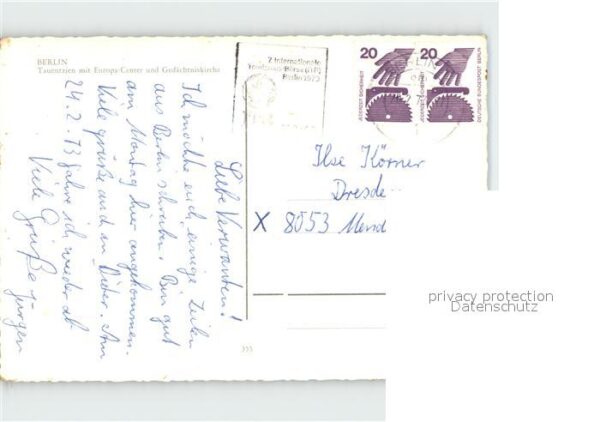 BERLIN
Tauentzien mit Europa-Center und Gedächtniskirche
7. Internationale
Tourismus-Börse (ITB)
Berlin 1973
20
20
JEDERZEIT SICHERHEIT
JEDERZEIT SICHERHEIT
DEUTSCHE BUNDESPOST BERLIN
BERLIN
Liebe Verwandten!
Ich möchte euch einige Zeilen
aus Berlin schreiben. Bin gut
am Montag hier angekommen.
Viele Grüße auch an Dieter. Am
24.2.73 fahre ich wieder ab
Viele Grüße Jürgen
Ilse Körner
Dresde
X 8053
privacy protection
Datenschutz